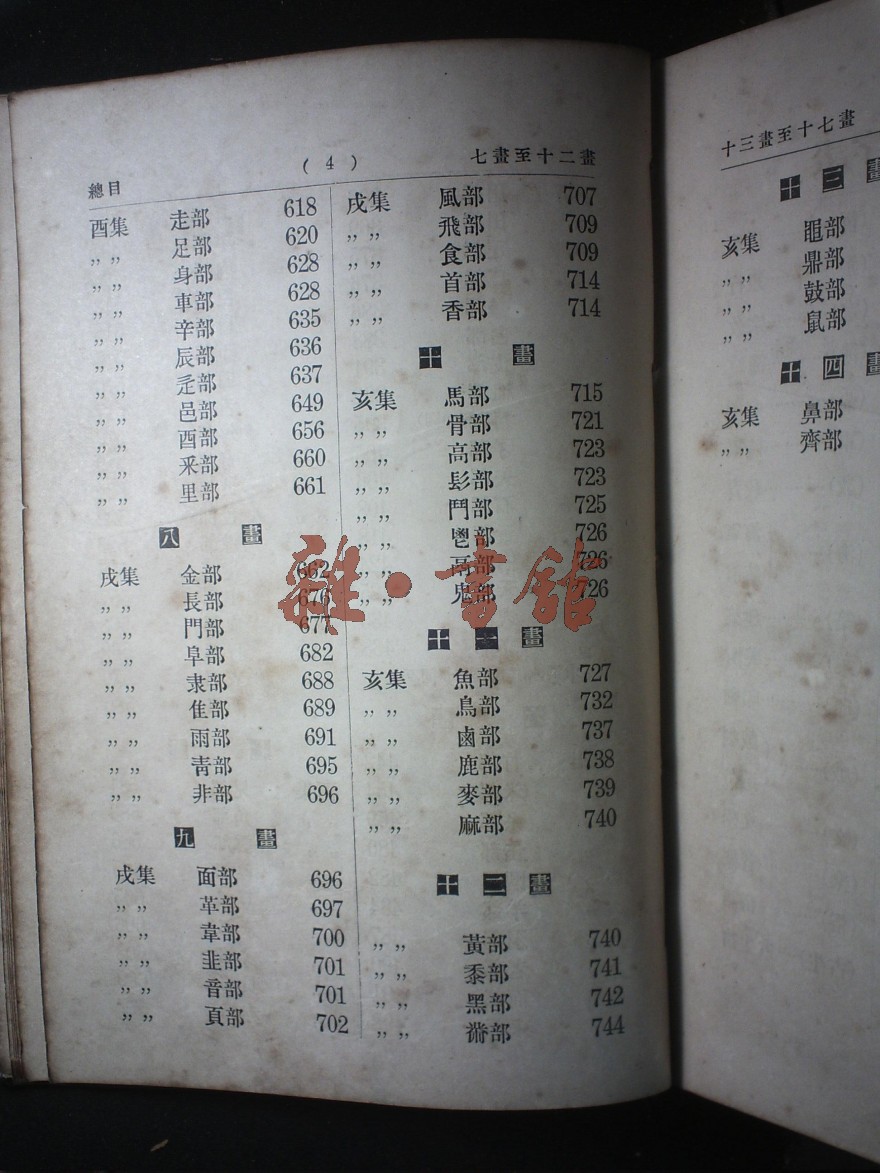 七畫至十二畫
( 4 )
總目
酉集 走部 618
,, ,, 足部 620
,, ,, 身部 628
,, ,, 車部 628
,, ,, 辛部 635
,, ,, 辰部 636
,, ,, 辵部 637
,, ,, 邑部 649
,, ,, 酉部 656
,, ,, 釆部 660
,, ,, 里部 661
八畫
戌集 金部 662
,, ,, 長部 676
,, ,, 門部 677
,, ,, 阜部 682
,, ,, 隶部 688
,, ,, 隹部 689
,, ,, 雨部 691
,, ,, 靑部 695
,, ,, 非部 696
九畫
戌集 面部 696
,, ,, 革部 697
,, ,, 韋部 700
,, ,, 韭部 701
,, ,, 音部 701
,, ,, 頁部 702
戌集 風部 707
,, ,, 飛部 709
,, ,, 食部 709
,, ,, 首部 714
,, ,, 香部 714
十畫
亥集 馬部 715
,, ,, 骨部 721
,, ,, 高部 723
,, ,, 髟部 723
,, ,, 鬥部 725
,, ,, 鬯部 726
,, ,, 鬲部 726
,, ,, 鬼部 726
十一畫
亥集 魚部 727
,, ,, 鳥部 732
,, ,, 鹵部 737
,, ,, 鹿部 738
,, ,, 麥部 739
,, ,, 麻部 740
十二畫
,, ,, 黃部 740
,, ,, 黍部 741
,, ,, 黑部 742
,, ,, 黹部 744
雜·書館
十三畫至十七畫
十三畫
亥集 黽部
,, ,, 鼎部
,, ,, 鼓部
,, ,, 鼠部
十四畫
亥集 鼻部
,, ,, 齊部